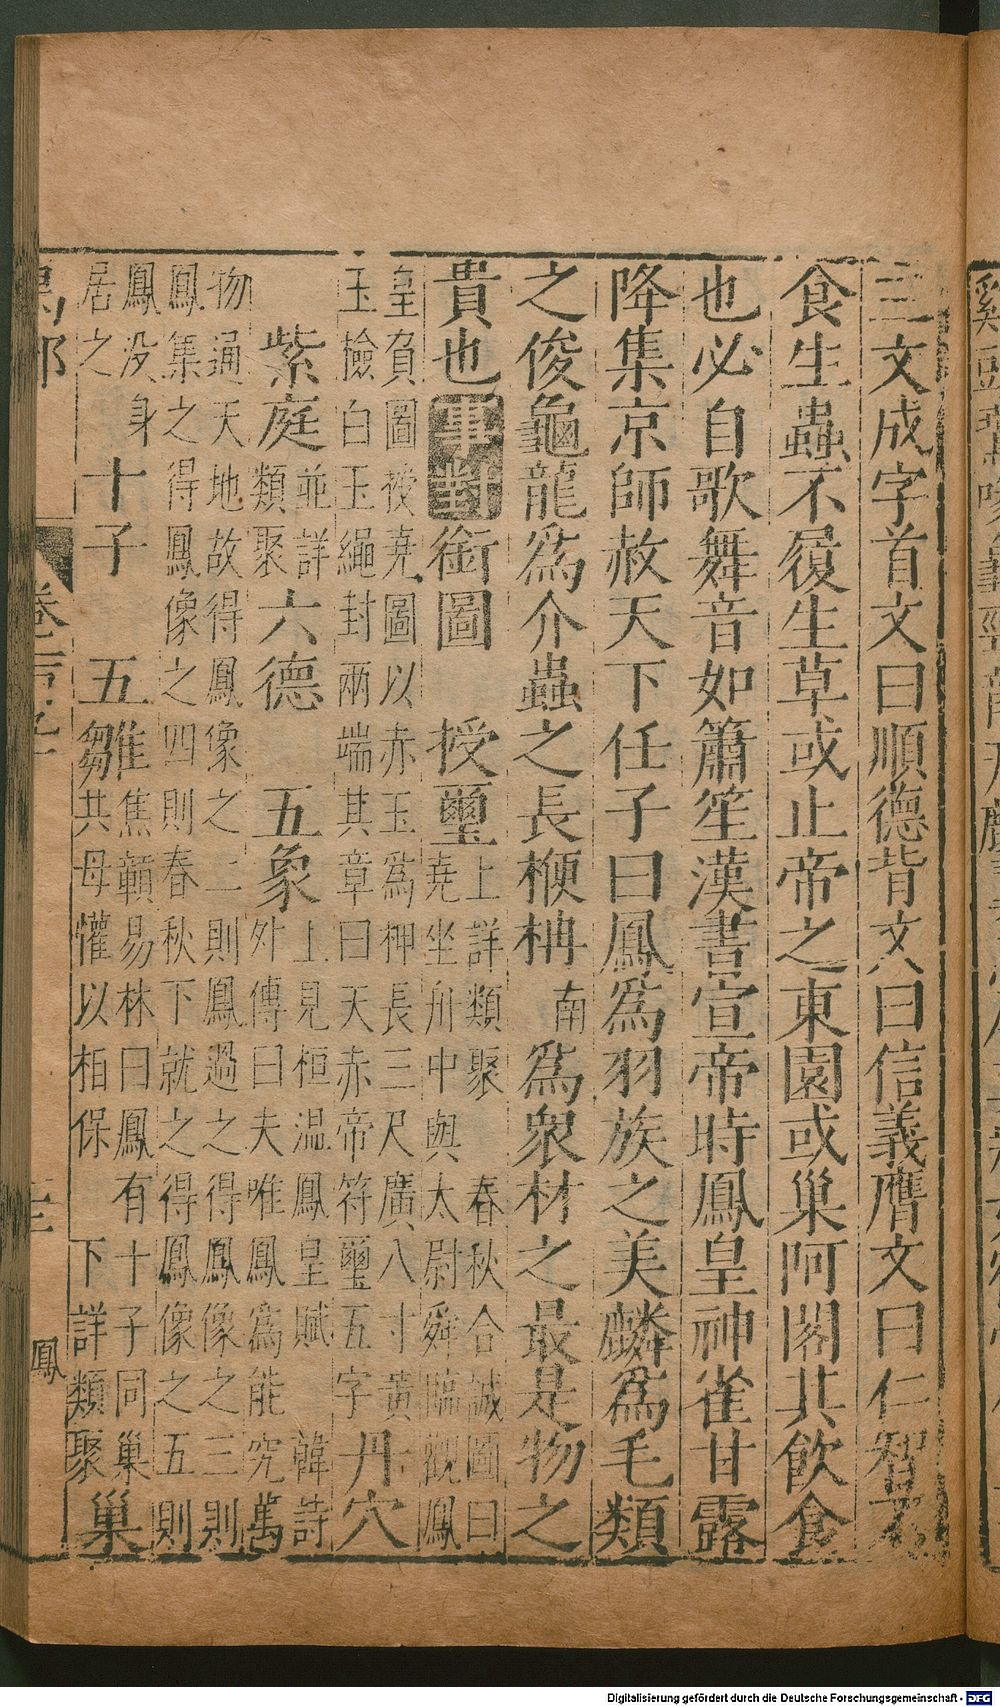 三文成字首文曰順德背文曰信義膺文曰仁智不
食生蟲不履生草或止帝之東園或巢阿閣其飲食
也必自歌舞音如簫笙漢書宣帝時鳳皇神雀甘露
降集京師赦天下任子曰鳳爲羽族之美麟爲毛類
之俊龜龍爲介蟲之長楩柟南爲衆材之最是物之
貴也事對銜圖 授璽上詳類聚 春秋合誠圖曰
堯坐舟中與太尉舜臨觀鳳
皇負圖被堯圖以赤玉爲柙長三尺廣八寸黃
玉檢白玉繩封兩端其章曰天赤帝符璽五字 丹穴
紫庭並詳類聚 六德 五象上見桓溫鳳皇賦 韓詩
外傳曰夫唯鳳爲能究萬
物通天地故得鳳像之二則鳳過之得鳳像之三則
鳳集之得鳳像之四則春秋下就之得鳳像之五則
鳳没身
居之 十子 五雛焦贛易林曰鳳有十子同巢
共母懽以柏保 下詳類聚 巢
鳳